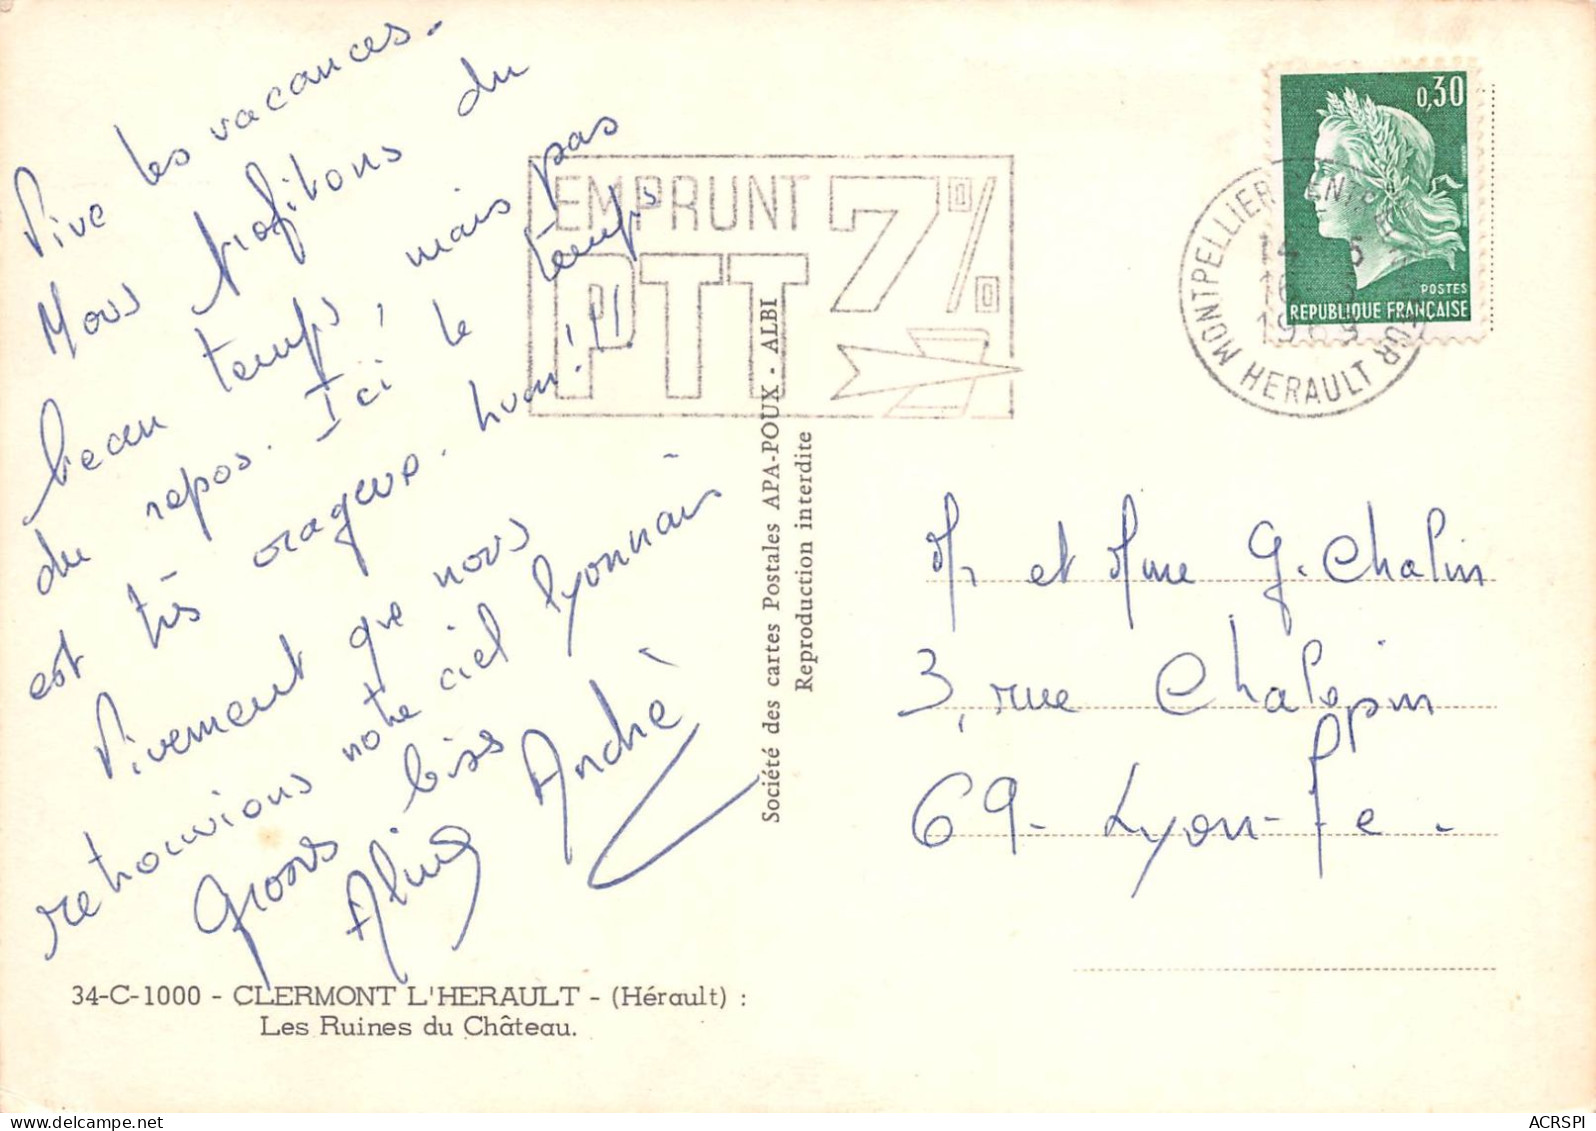 Vive les vacances.
Nous profitons du
beau temps, mais pas
du repos. Ici le temps
est très orageux. hum!!!
Vivement que nous
retrouvions notre ciel lyonnais
Grosses bises
André
34-C-1000 - CLERMONT L'HERAULT - (Hérault) :
Les Ruines du Château.
EMPRUNT 7%
PTT
Société des cartes Postales APA-POUX - ALBI
Reproduction interdite
0,30
POSTES
REPUBLIQUE FRANÇAISE
MONTPELLIER
HERAULT
1969
Mr et Mme G. Chalin
3, rue Chalopin
69 - Lyon - 7e -
ACRSPI